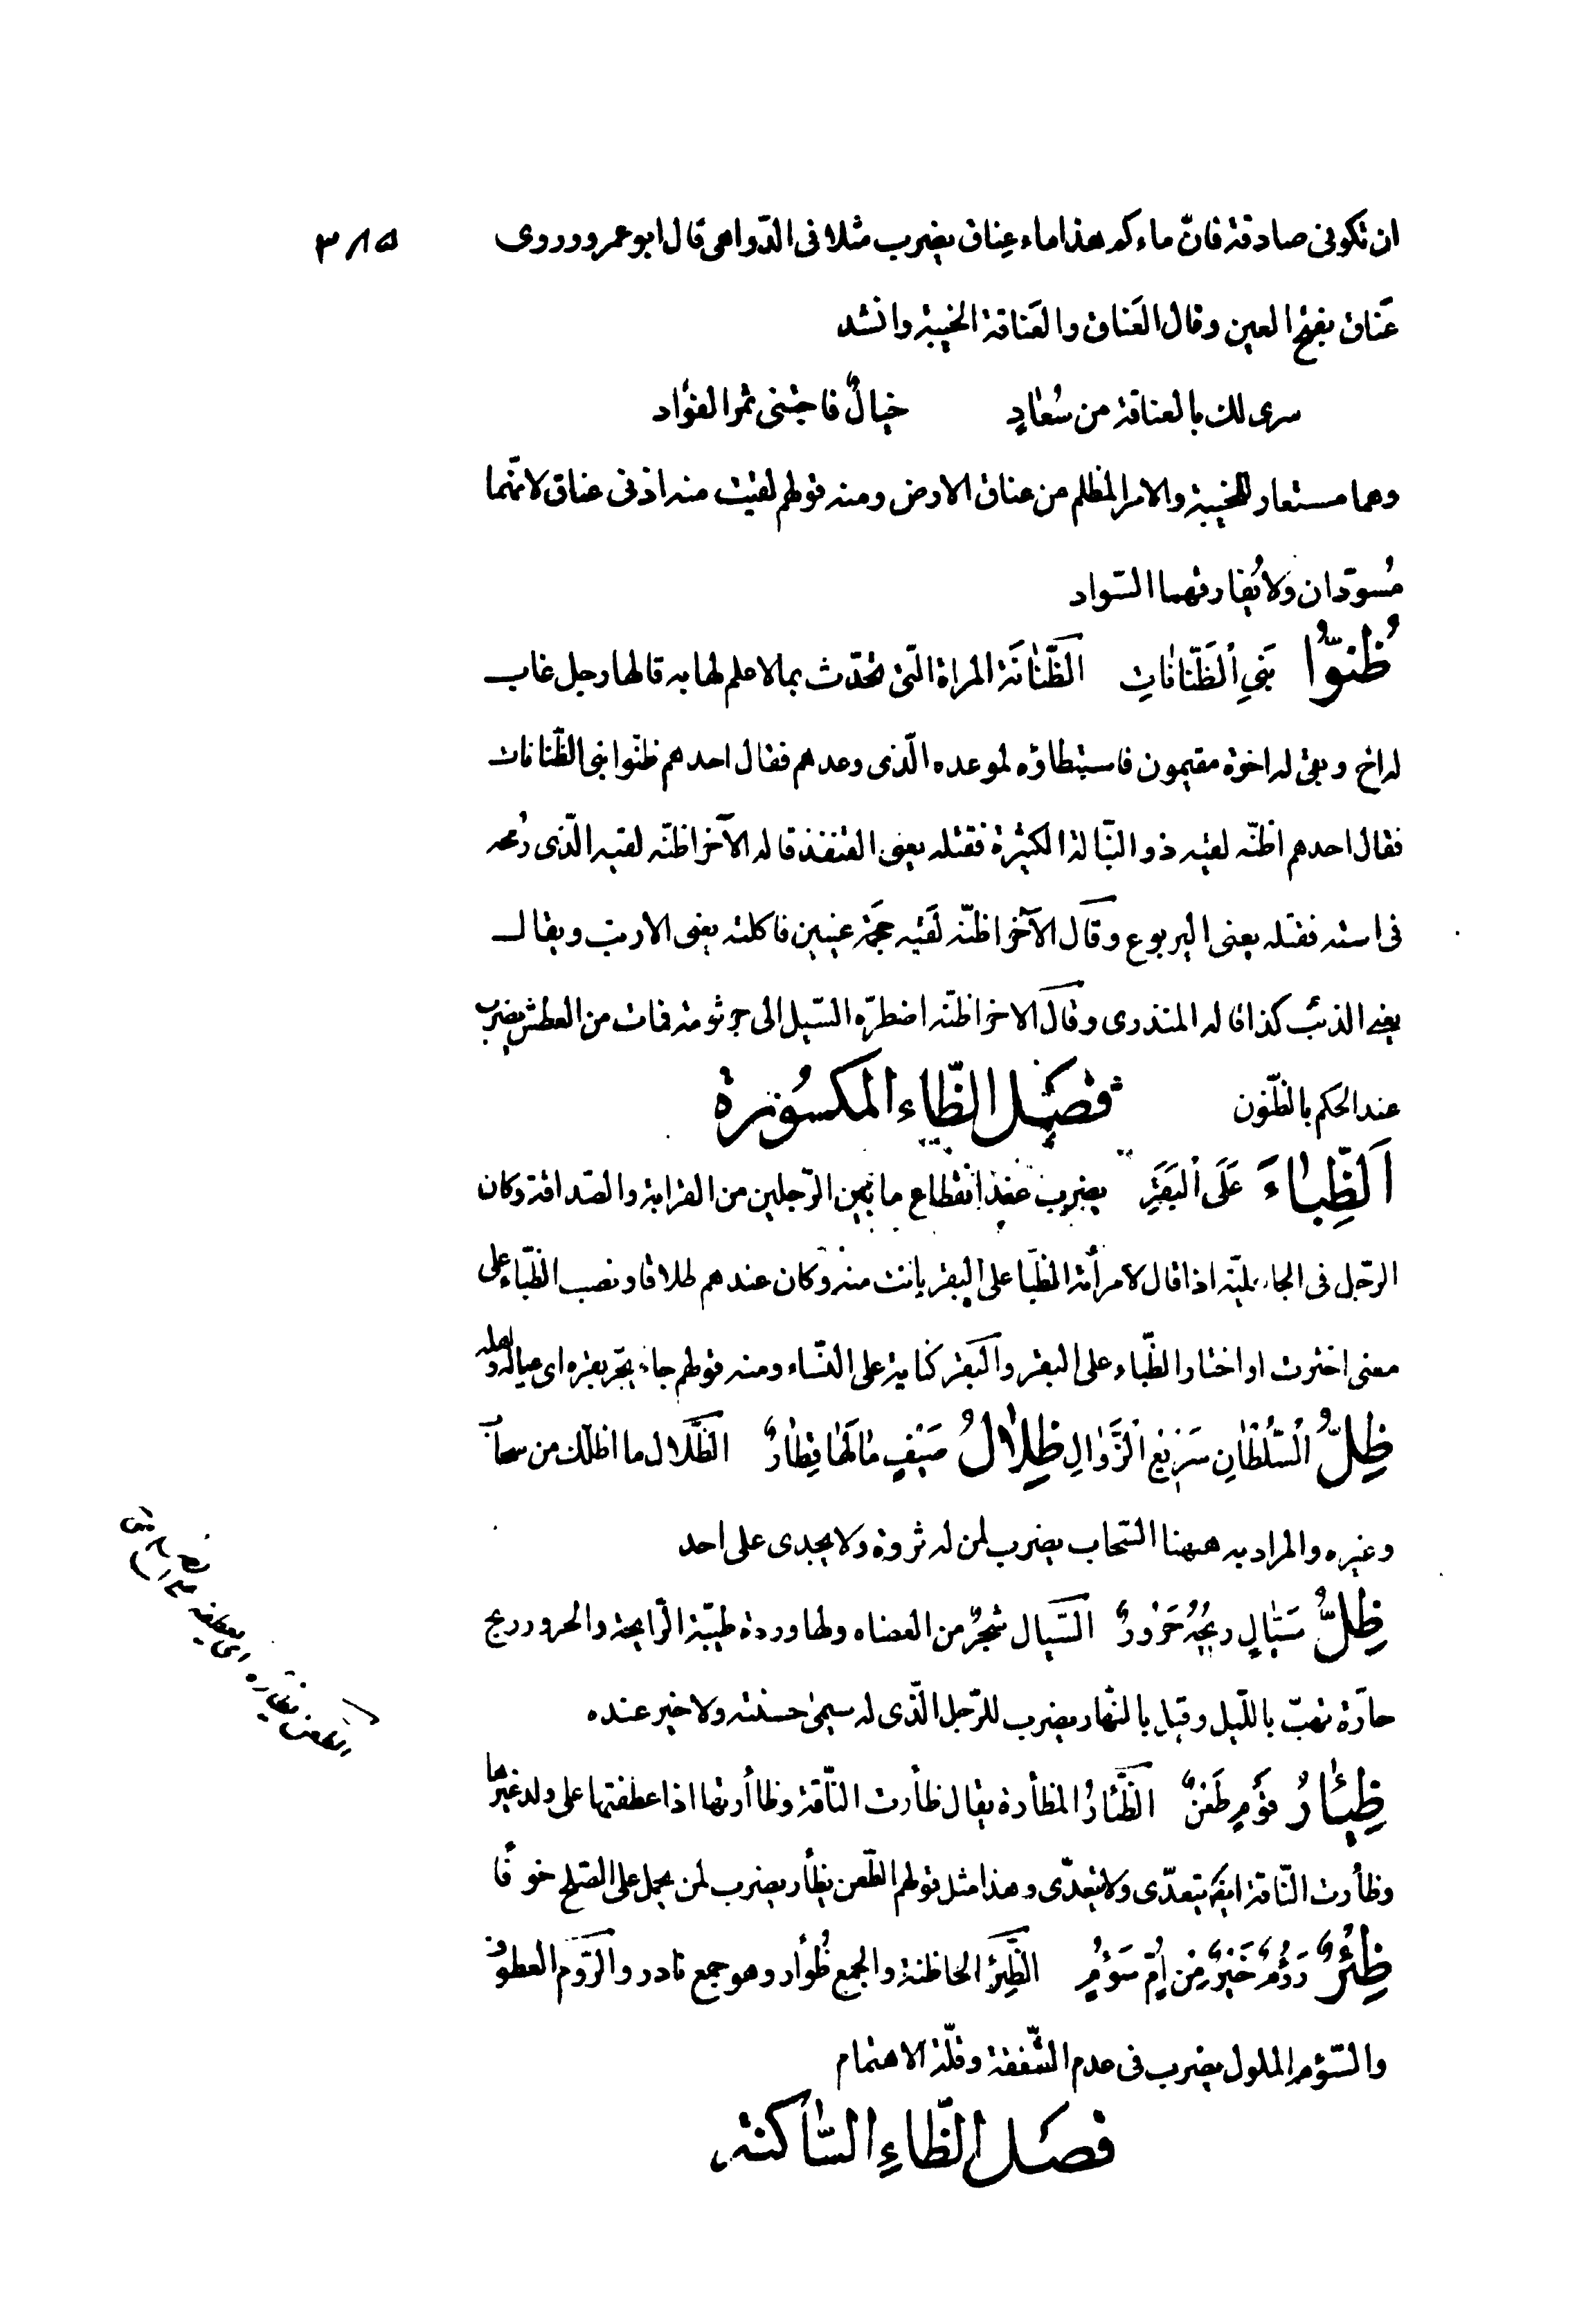 ان تكونى صادقة فانّ ماءكم هذا ماء عِناق يضرب مثلا فى الدّواهى قال ابو عمرو وروى
٣٨٥
عَناق بفتح العين وقال العَناق والعَناقة الخيبة وانشد
سرى لك بالعناقة من سُعٰادٍ خيالٌ فاجتنى ثمر الفؤاد
وهما مستعار للخيبة والامر المظلم من عناق الارض ومنه قولهم لقيت منه اذنى عناق لانّهما
مُسودّان ولا يُفارقهما السّواد
ظُنوّا بَنِى اْلظَنّٰانٰاتِ الظَّنّٰانَة المراة الّتى تحدّث بما لا علم لها به قالها رجل غاب
له اخ وبقى له اخوة مقيمون فاستبطاؤه لموعده الّذى وعدهم فقال احدهم ظنّوا بنى الظّنانات
فقال احدهم اظنّه لقيه ذو النّبالة الكثيرة فقتله يعنى القنفذ قاله الآخر اظنّه لقيه الّذى رُمحه
فى استه فقتله يعنى اليربوع وقال الآخر اظنّه لَقيه حجَمة عينين فاكلته يعنى الارنب ويقال
يعنى الذئب كذا قاله المنذرى وقال الاخر اظنّه اضطرّه السّيل الى جرثومة فمات من العطش يضرب
عند الحكم بالظّنون فصَل الظّاء المكسُورة
اَلظِّبٰاءَ عَلَى اْلبَقَرِ يضرب عند انقطاع ما بين الرّجلين من القرابة والصّداقة وكان
الرّجل فى الجاهليّة اذا قال لامرأته الظبّا على البقر بانت منه وكان عندهم طلاقا ونصب الظّباء على
معنى اخترت او اختار الظّباء على البقر والبَقر كناية على النّساء ومنه قولهم جاء يجّر بقره اى عياله واهله
ظِلُّ اْلسُّلْطٰانِ سَريْعُ اْلزَّوٰالِ ظِلاٰلُ صَيْفٍ مٰا لَهٰا قِطٰارٌ الظَّلال ما اظلّك من سحاب
وغيره والمراد به ههنا السّحاب يضرب لمن له ثروة ولا يجدى على احد
ظِلُّ سَيٰالٍ ريْحُهُ حَرُورٌ السّيال شجرٌ من العضاه ولها وردة طيّبة الرّايحة والحرور ريح
حارّة تهبّ باللّيل وقيل بالنّهار يضرب للرّجل الّذى له سيمىٰ حسنة ولا خير عنده
ظِئٰارُ قَومٍ طَعْنٌ الظّئارُ المظأرة يقال ظأرت النّاقة وظاأرتها اذا عطفتها على ولد غيرها
وظأرت النّاقة ايضا يتعدّى ولا يتعدّى وهذا مثل قولهم الطّعن يظأر يضرب لمن يحمل على الصّلح خوفًا
ظِئْرٌ رَؤُمٌ خَيْرٌ مِنْ اُمّ سَؤُمٍ الظّئر الحاظنة والجمع ظُوأر وهو جمع نادر والرّوم العطوف
والسّؤم الملول يضرب فى عدم الشّفقة وقلّة الاهتمام
فصَل الظّاءِ السّٰاكنة